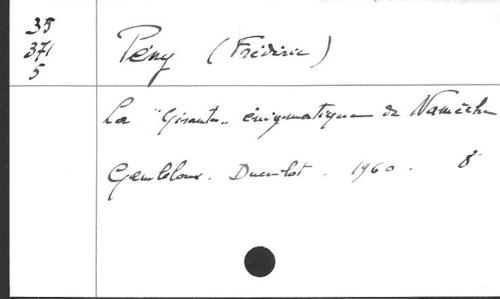 35
371
5
Pény (Frédéric)
La "Gisante" énigmatique de Namêche
Gembloux. Duculot. 1960. 8°